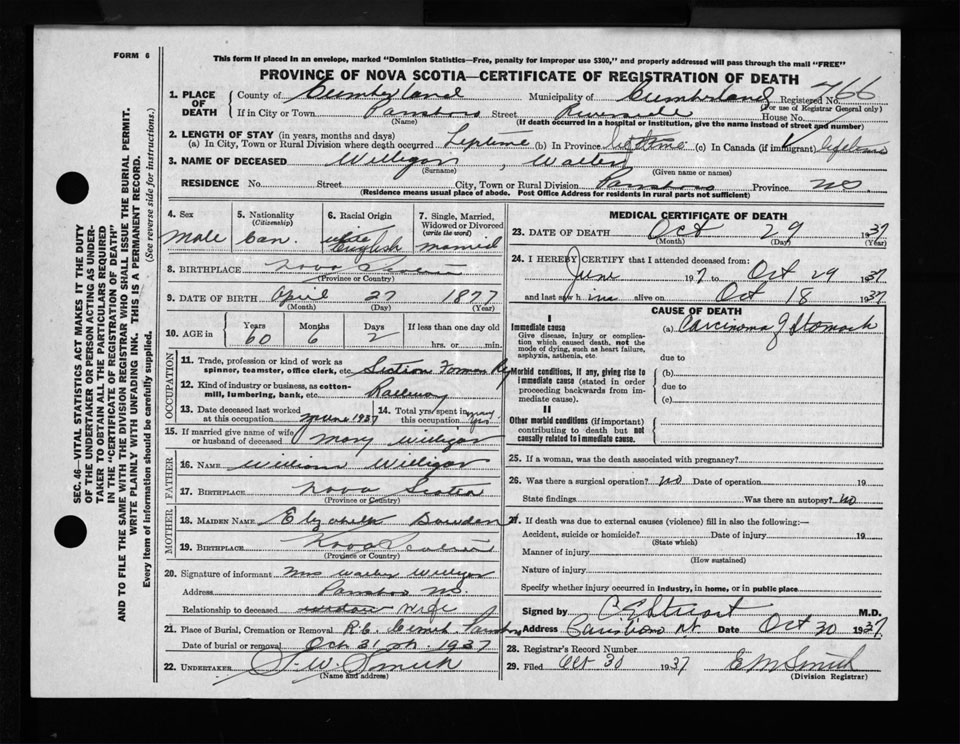 FORM 6
This form if placed in an envelope, marked "Dominion Statistics—Free, penalty for improper use $300," and properly addressed will pass through the mail "FREE"
PROVINCE OF NOVA SCOTIA—CERTIFICATE OF REGISTRATION OF DEATH
SEC. 46—VITAL STATISTICS ACT MAKES IT THE DUTY
OF THE UNDERTAKER OR PERSON ACTING AS UNDER-
TAKER TO OBTAIN ALL THE PARTICULARS REQUIRED
IN THE "CERTIFICATE OF REGISTRATION OF DEATH"
AND TO FILE THE SAME WITH THE DIVISION REGISTRAR WHO SHALL ISSUE THE BURIAL PERMIT.
WRITE PLAINLY WITH UNFADING INK. THIS IS A PERMANENT RECORD.
Every item of information should be carefully supplied. (See reverse side for instructions.)
1. PLACE OF DEATH
County of Cumberland Municipality of Cumberland Registered No. 766
(For use of Registrar General only)
If in City or Town Parrsboro Street Riverside House No.
(Name) (If death occurred in a hospital or institution, give the name instead of street and number)
2. LENGTH OF STAY (in years, months and days)
(a) In City, Town or Rural Division where death occurred Leptime (b) In Province lifetime (c) In Canada (if immigrant) lifetime
3. NAME OF DECEASED Willigar, Walter
(Surname) (Given name or names)
RESIDENCE No. Street City, Town or Rural Division Parrsboro Province NS.
(Residence means usual place of abode. Post Office Address for residents in rural parts not sufficient)
4. Sex Male
5. Nationality (Citizenship) Can.
6. Racial Origin white English
7. Single, Married, Widowed or Divorced (write the word) married
8. BIRTHPLACE Nova Scotia
(Province or Country)
9. DATE OF BIRTH April 27 1877
(Month) (Day) (Year)
10. AGE in Years Months Days If less than one day old
60 6 2 hrs. or min.
OCCUPATION
11. Trade, profession or kind of work as
spinner, teamster, office clerk, etc. Section Forman Ry
12. Kind of industry or business, as cotton-
mill, lumbering, bank, etc. Railway
13. Date deceased last worked
at this occupation June 1937
14. Total yrs/spent in
this occupation many yrs
15. If married give name of wife
or husband of deceased Mary Willigar
FATHER
16. NAME William Willigar
17. BIRTHPLACE Nova Scotia
(Province or Country)
MOTHER
18. MAIDEN NAME Elizabeth
19. BIRTHPLACE Nova Scotia
(Province or Country)
20. Signature of informant Mrs Walter Willigar
Address Parrsboro NS.
Relationship to deceased widow Wife
21. Place of Burial, Cremation or Removal R.C. Cemet. Parrsboro
Date of burial or removal Oct 31 st. 1937
22. UNDERTAKER W. Smith
(Name and address)
MEDICAL CERTIFICATE OF DEATH
23. DATE OF DEATH Oct 29 1937
(Month) (Day) (Year)
24. I HEREBY CERTIFY that I attended deceased from:
June 197 to Oct 29 1937
and last saw him alive on Oct 18 1937
CAUSE OF DEATH
I
Immediate cause
Give disease, injury or complica-
tion which caused death, not the
mode of dying, such as heart failure,
asphyxia, asthenia, etc.
(a) Carcinoma of Stomach
due to
Morbid conditions, if any, giving rise to
immediate cause (stated in order
proceeding backwards from im-
mediate cause).
(b)
due to
(c)
II
Other morbid conditions (if important)
contributing to death but not
causally related to immediate cause.
25. If a woman, was the death associated with pregnancy?
26. Was there a surgical operation? No Date of operation 19
State findings Was there an autopsy? No
27. If death was due to external causes (violence) fill in also the following:—
Accident, suicide or homicide? Date of injury 19
(State which)
Manner of injury
(How sustained)
Nature of injury
Specify whether injury occurred in industry, in home, or in public place
Signed by C E Stuart M.D.
Address Parrsboro NS. Date Oct 30 1937
28. Registrar's Record Number
29. Filed Oct 30 1937 E M Smith
(Division Registrar)